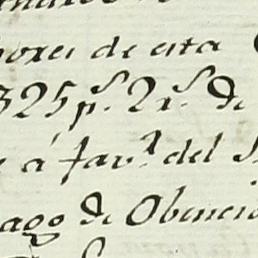 ores de esta
325 p.s 2 r.s de
á fav.r del
ago de Obencio